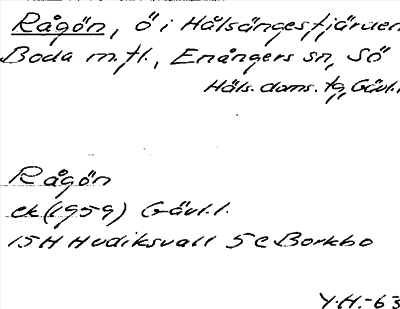 Rågön, ö i Hålsängesfjärden
Boda m.fl., Enångers sn, SÖ
Häls. doms. tg, Gävl.l
Rågön
ek (1959) Gävl.l.
15H Hudiksvall 5c Borkbo
Y.H.-63